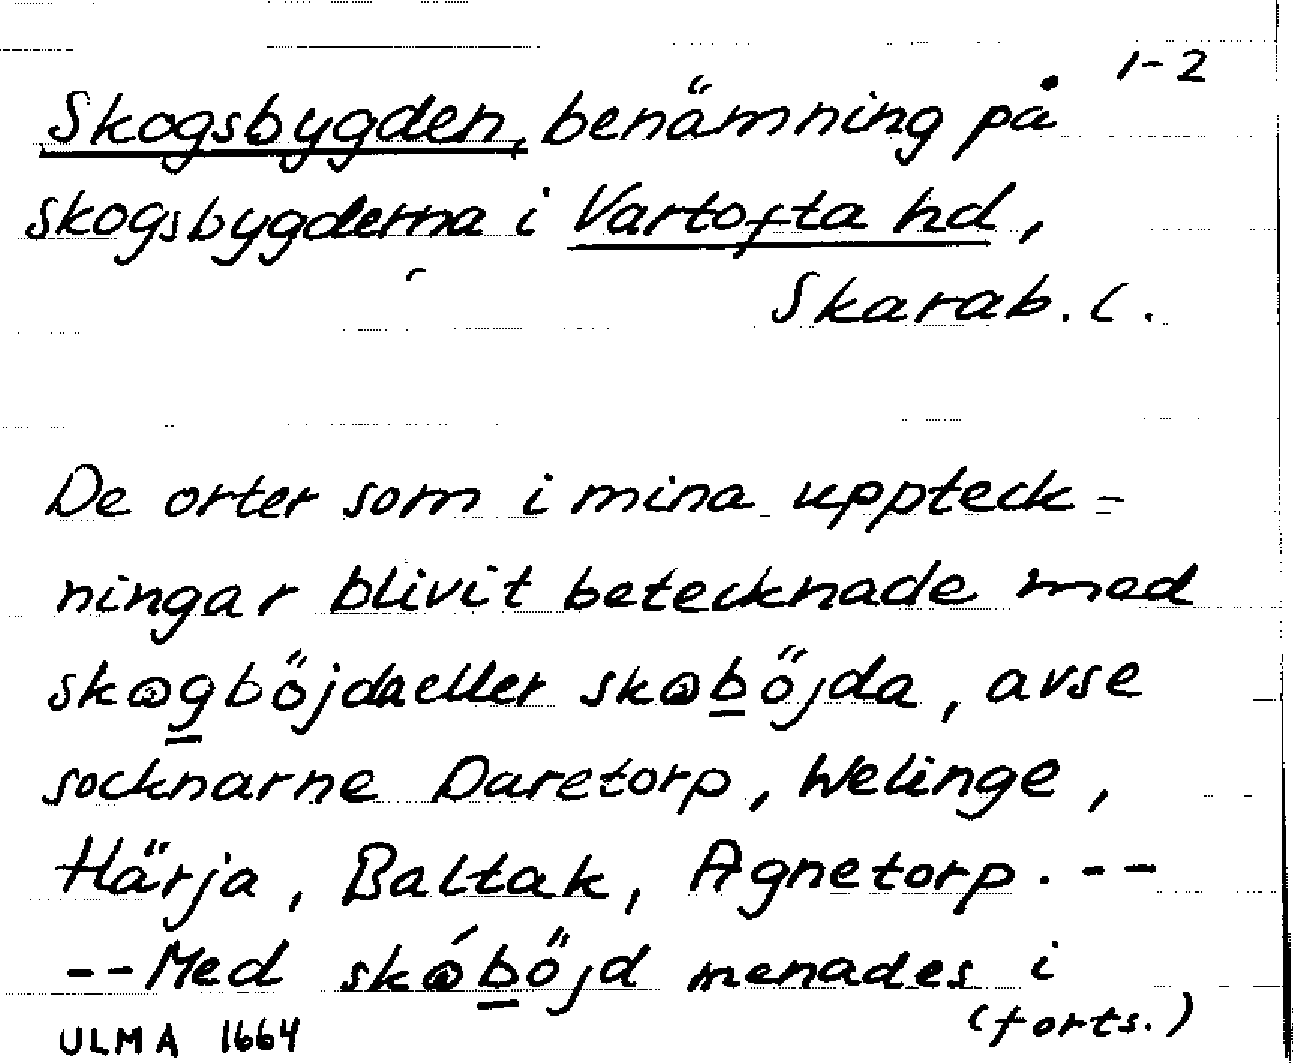 1-2
Skogsbygden, benämning på
skogsbygderna i Vartofta hd,
Skarab. l.
De orter som i mina uppteck-
ningar blivit betecknade med
skogböjda eller skoböjda, avse
socknarne Daretorp, Welinge,
Härja, Baltak, Agnetorp. --
-- Med skóböjd menades i
(forts.)
ULMA 1664